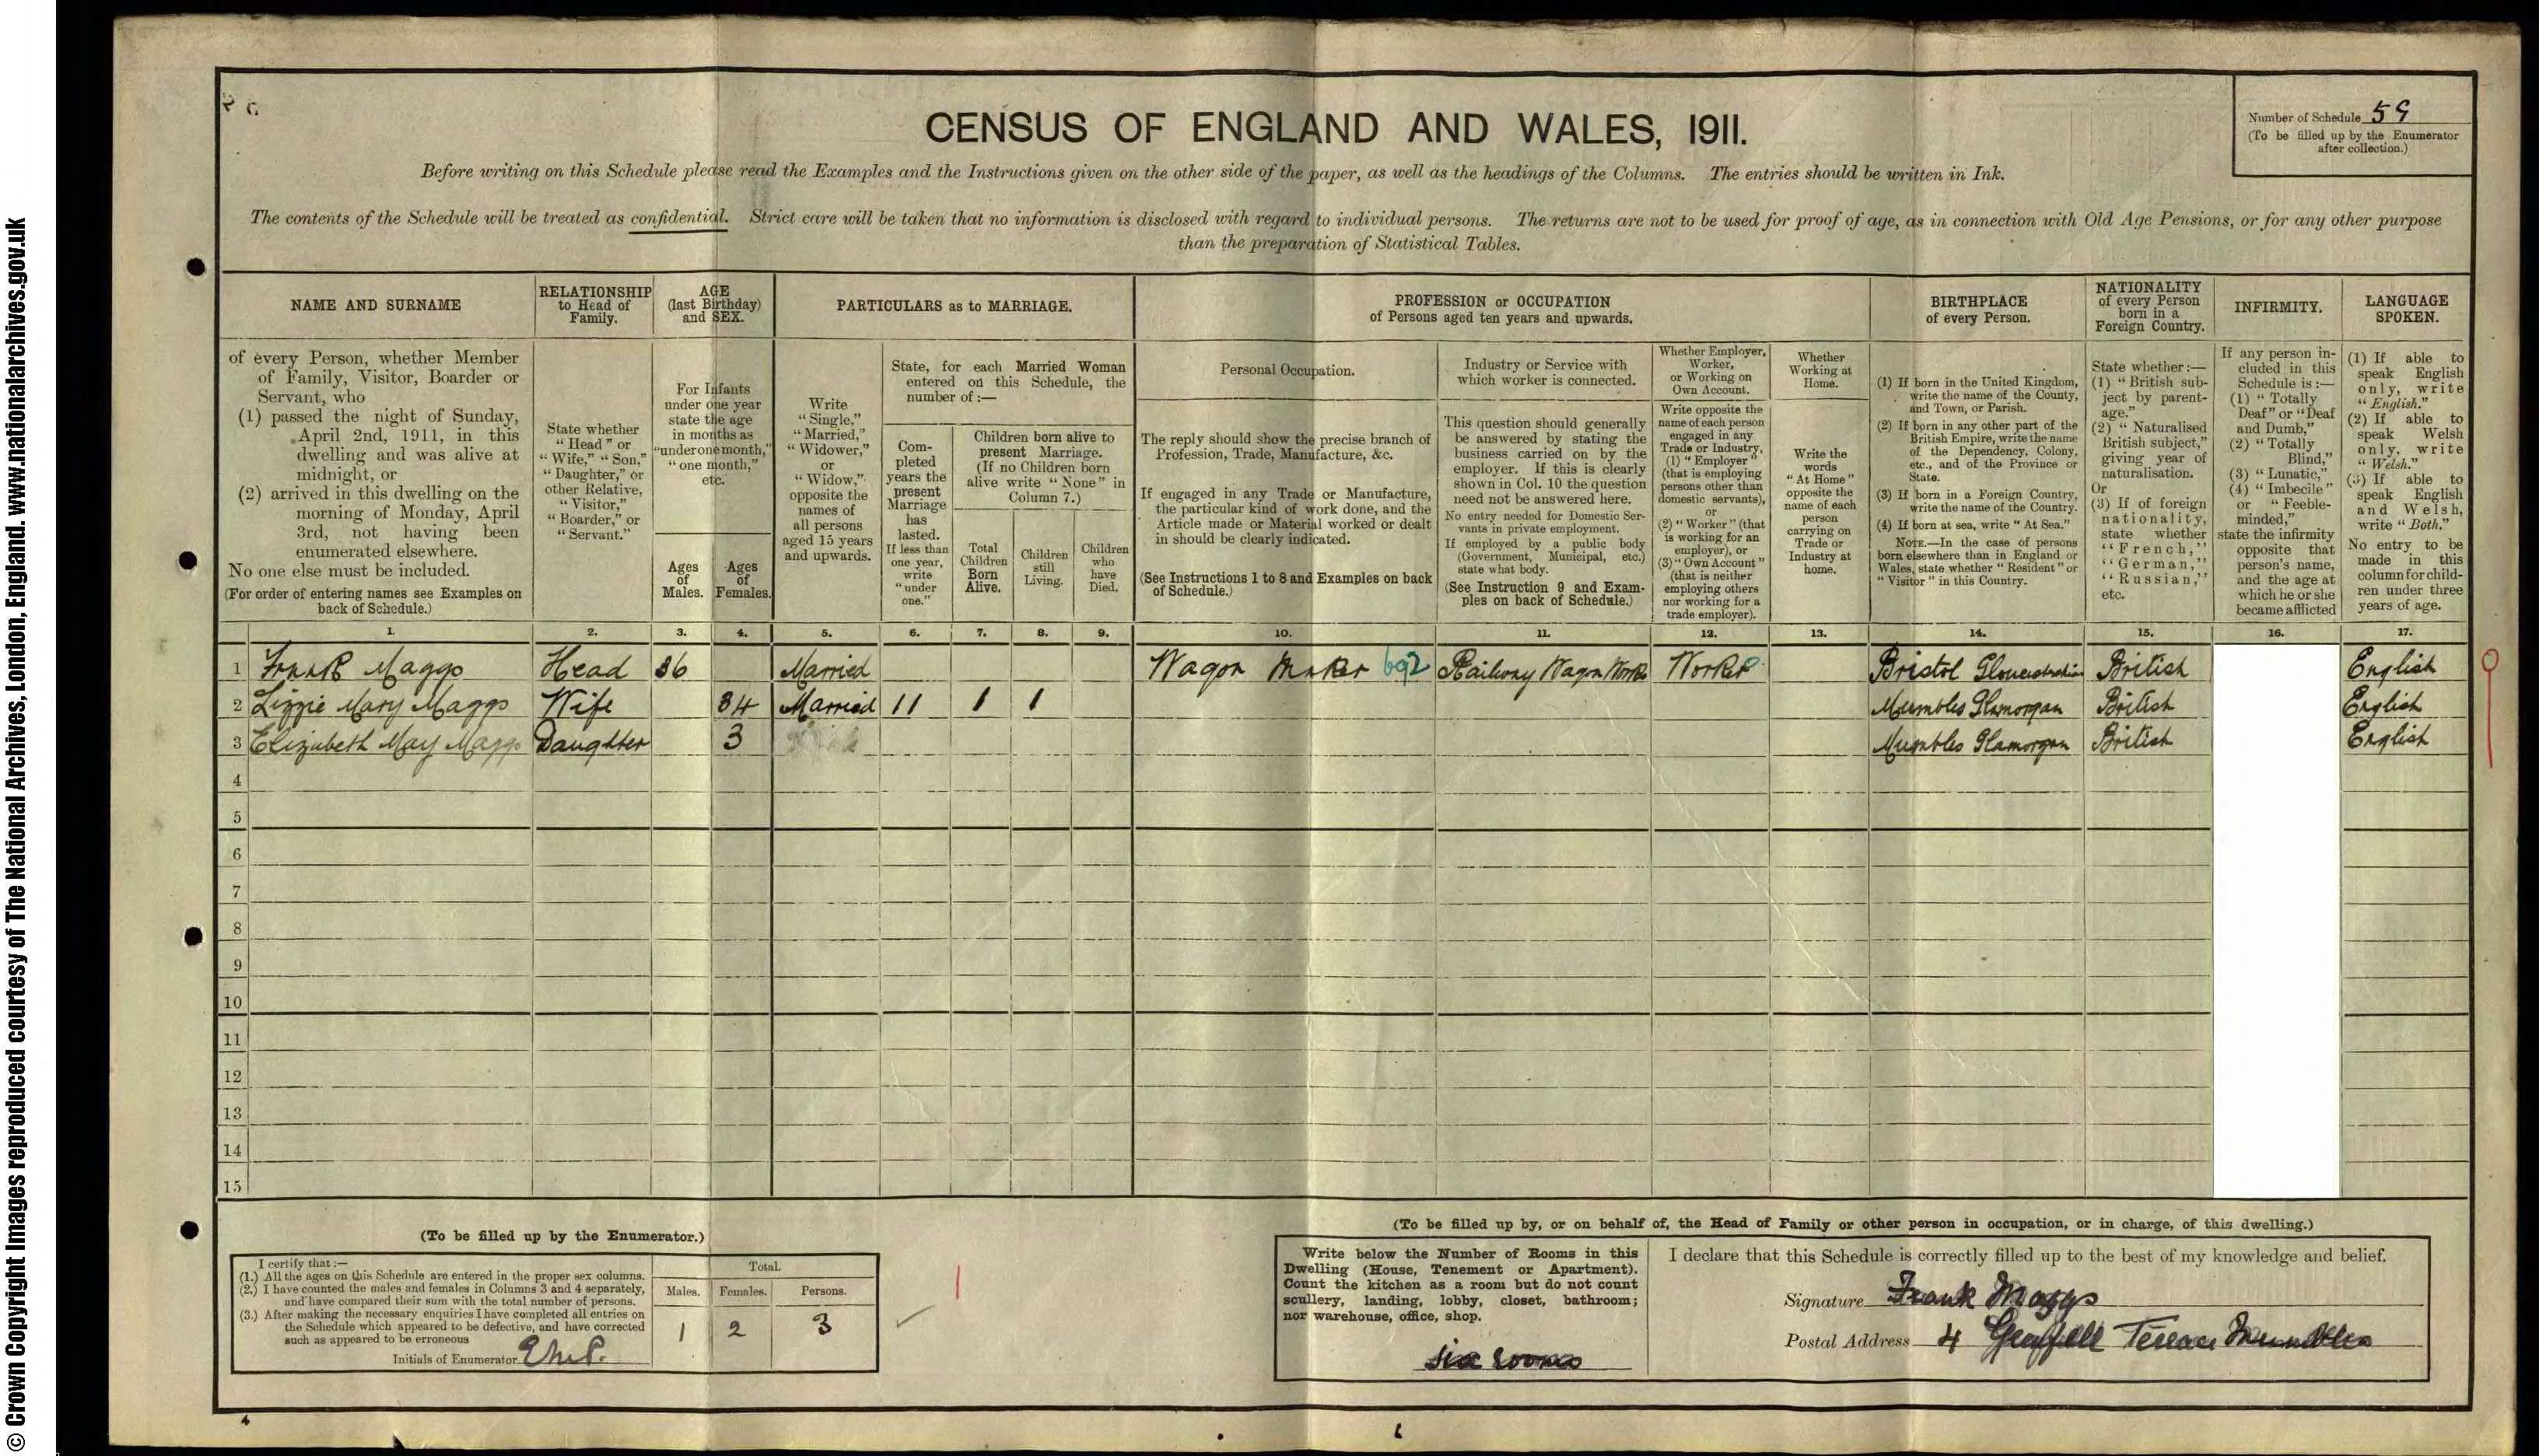 © Crown Copyright Images reproduced courtesy of The National Archives, London, England. www.nationalarchives.gov.uk
CENSUS OF ENGLAND AND WALES, 1911.
Number of Schedule 59
(To be filled up by the Enumerator
after collection.)
Before writing on this Schedule please read the Examples and the Instructions given on the other side of the paper, as well as the headings of the Columns. The entries should be written in Ink.
The contents of the Schedule will be treated as confidential. Strict care will be taken that no information is disclosed with regard to individual persons. The returns are not to be used for proof of age, as in connection with Old Age Pensions, or for any other purpose
than the preparation of Statistical Tables.
NAME AND SURNAME
RELATIONSHIP
to Head of
Family.
AGE
(last Birthday)
and SEX.
PARTICULARS as to MARRIAGE.
PROFESSION or OCCUPATION
of Persons aged ten years and upwards.
BIRTHPLACE
of every Person.
NATIONALITY
of every Person
born in a
Foreign Country.
INFIRMITY.
LANGUAGE
SPOKEN.
of every Person, whether Member
of Family, Visitor, Boarder or
Servant, who
(1) passed the night of Sunday,
April 2nd, 1911, in this
dwelling and was alive at
midnight, or
(2) arrived in this dwelling on the
morning of Monday, April
3rd, not having been
enumerated elsewhere.
No one else must be included.
(For order of entering names see Examples on
back of Schedule.)
State whether
"Head" or
"Wife," "Son,"
"Daughter," or
other Relative,
"Visitor,"
"Boarder," or
"Servant."
For Infants
under one year
state the age
in months as
"under one month,"
"one month,"
etc.
Ages
of
Males.
Ages
of
Females.
Write
"Single,"
"Married,"
"Widower,"
or
"Widow,"
opposite the
names of
all persons
aged 15 years
and upwards.
State, for each Married Woman
entered on this Schedule, the
number of :—
Com-
pleted
years the
present
Marriage
has
lasted.
If less than
one year,
write
"under
one."
Children born alive to
present Marriage.
(If no Children born
alive write "None" in
Column 7.)
Total
Children
Born
Alive.
Children
still
Living.
Children
who
have
Died.
Personal Occupation.
The reply should show the precise branch of
Profession, Trade, Manufacture, &c.
If engaged in any Trade or Manufacture,
the particular kind of work done, and the
Article made or Material worked or dealt
in should be clearly indicated.
(See Instructions 1 to 8 and Examples on back
of Schedule.)
Industry or Service with
which worker is connected.
This question should generally
be answered by stating the
business carried on by the
employer. If this is clearly
shown in Col. 10 the question
need not be answered here.
No entry needed for Domestic Ser-
vants in private employment.
If employed by a public body
(Government, Municipal, etc.)
state what body.
(See Instruction 9 and Exam-
ples on back of Schedule.)
Whether Employer,
Worker,
or Working on
Own Account.
Write opposite the
name of each person
engaged in any
Trade or Industry,
(1) "Employer"
(that is employing
persons other than
domestic servants),
or
(2) "Worker" (that
is working for an
employer), or
(3) "Own Account"
(that is neither
employing others
nor working for a
trade employer).
Whether
Working at
Home.
Write the
words
"At Home"
opposite the
name of each
person
carrying on
Trade or
Industry at
home.
(1) If born in the United Kingdom,
write the name of the County,
and Town, or Parish.
(2) If born in any other part of the
British Empire, write the name
of the Dependency, Colony,
etc., and of the Province or
State.
(3) If born in a Foreign Country,
write the name of the Country.
(4) If born at sea, write "At Sea."
NOTE.—In the case of persons
born elsewhere than in England or
Wales, state whether "Resident" or
"Visitor" in this Country.
State whether :—
(1) "British sub-
ject by parent-
age."
(2) "Naturalised
British subject,"
giving year of
naturalisation.
Or
(3) If of foreign
nationality,
state whether
"French,"
"German,"
"Russian,"
etc.
If any person in-
cluded in this
Schedule is :—
(1) "Totally
Deaf" or "Deaf
and Dumb,"
(2) "Totally
Blind,"
(3) "Lunatic,"
(4) "Imbecile"
or "Feeble-
minded,"
state the infirmity
opposite that
person's name,
and the age at
which he or she
became afflicted
(1) If able to
speak English
only, write
"English."
(2) If able to
speak Welsh
only, write
"Welsh."
(3) If able to
speak English
and Welsh,
write "Both."
No entry to be
made in this
column for child-
ren under three
years of age.
1. 2. 3. 4. 5. 6. 7. 8. 9. 10. 11. 12. 13. 14. 15. 16. 17.
1 Frank Maggs Head 36 Married Wagon Maker 692 Railway Wagon Works Worker Bristol Gloucestershire British English
2 Lizzie Mary Maggs Wife 34 Married 11 1 1 Mumbles Glamorgan British English
3 Elizabeth May Maggs Daughter 3 Mumbles Glamorgan British English
4
5
6
7
8
9
10
11
12
13
14
15
(To be filled up by the Enumerator.)
I certify that :—
(1.) All the ages on this Schedule are entered in the proper sex columns.
(2.) I have counted the males and females in Columns 3 and 4 separately,
and have compared their sum with the total number of persons.
(3.) After making the necessary enquiries I have completed all entries on
the Schedule which appeared to be defective, and have corrected
such as appeared to be erroneous
Initials of Enumerator
Total.
Males. Females. Persons.
1 2 3
(To be filled up by, or on behalf of, the Head of Family or other person in occupation, or in charge, of this dwelling.)
Write below the Number of Rooms in this
Dwelling (House, Tenement or Apartment).
Count the kitchen as a room but do not count
scullery, landing, lobby, closet, bathroom;
nor warehouse, office, shop.
six rooms
I declare that this Schedule is correctly filled up to the best of my knowledge and belief.
Signature Frank Maggs
Postal Address 4 Terrace Mumbles